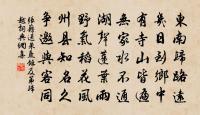 東南歸路遠
幾日到鄉中
有寺山皆遍
無家水不通
湖聲蓮葉雨
野氣稻花風
州縣知名久
爭邀與客同
張籍送朱慶餘及第歸
越詞典網集